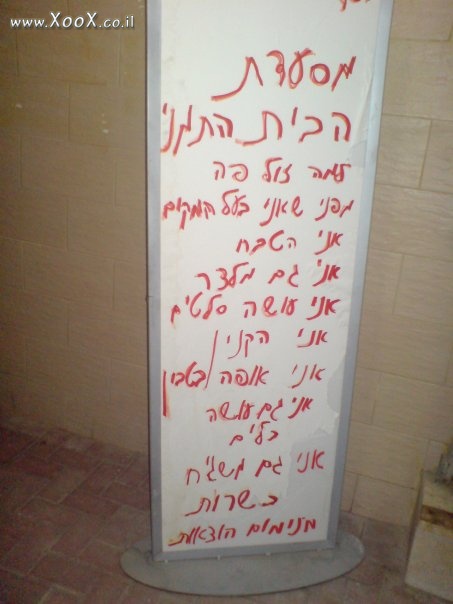 www.XooX.co.il
מסעדת
הבית התימני
למה זול פה
מפני שאני בעל המקום
אני הטבח
אני גם מלצר
אני עושה סלטים
אני הקניין
אני אופה בטבון
אני גם עושה
כלים
אני גם משגיח
כשרות
מנימום הוצאות